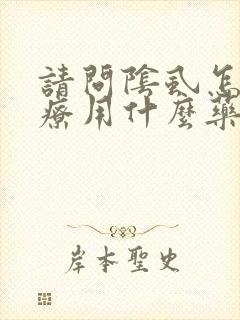 請問陰虱怎
療用什麼藥
岸本聖史